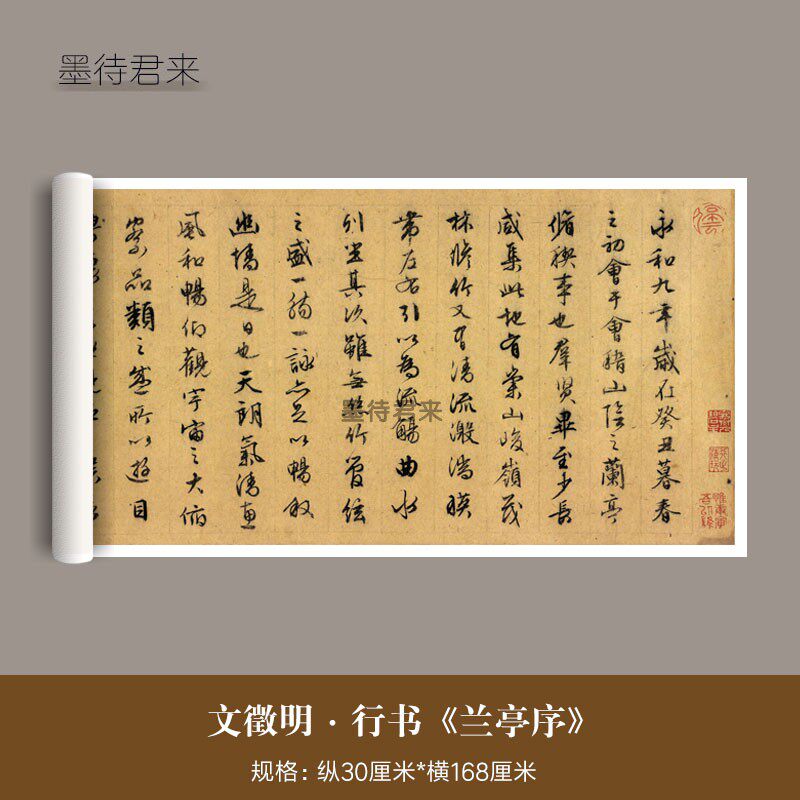 墨待君来
永和九年歲在癸丑暮春
之初會于會稽山陰之蘭亭
脩稧事也羣賢畢至少長
咸集此地有崇山峻嶺茂
林脩竹又有清流激湍暎
帶左右引以為流觴曲水
列坐其次雖無絲竹管絃
之盛一觴一詠亦足以暢敘
幽情是日也天朗氣清惠
風和暢仰觀宇宙之大俯
察品類之盛所以遊目
墨待君来
文徵明·行书《兰亭序》
规格：纵30厘米*横168厘米